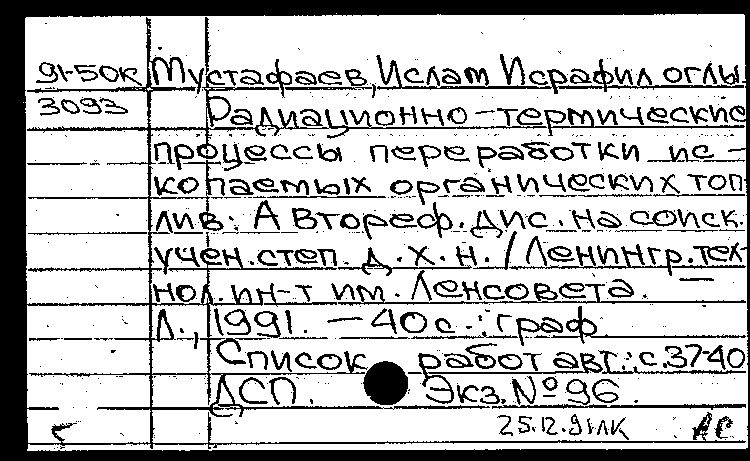 91-50к Мустафаев, Ислам Исрафил оглы.
3093 Радиационно-термические
процессы переработки ис-
копаемых органических топ-
лив: Автореф. дис. на соиск.
учен. степ. д. х. н. / Ленингр. тех-
нол. ин-т им. Ленсовета. —
Л., 1991. — 40 с.: граф.
Список работ авт.: с. 37-40
ДСП. Экз. № 96.
25.12.91 ЛК